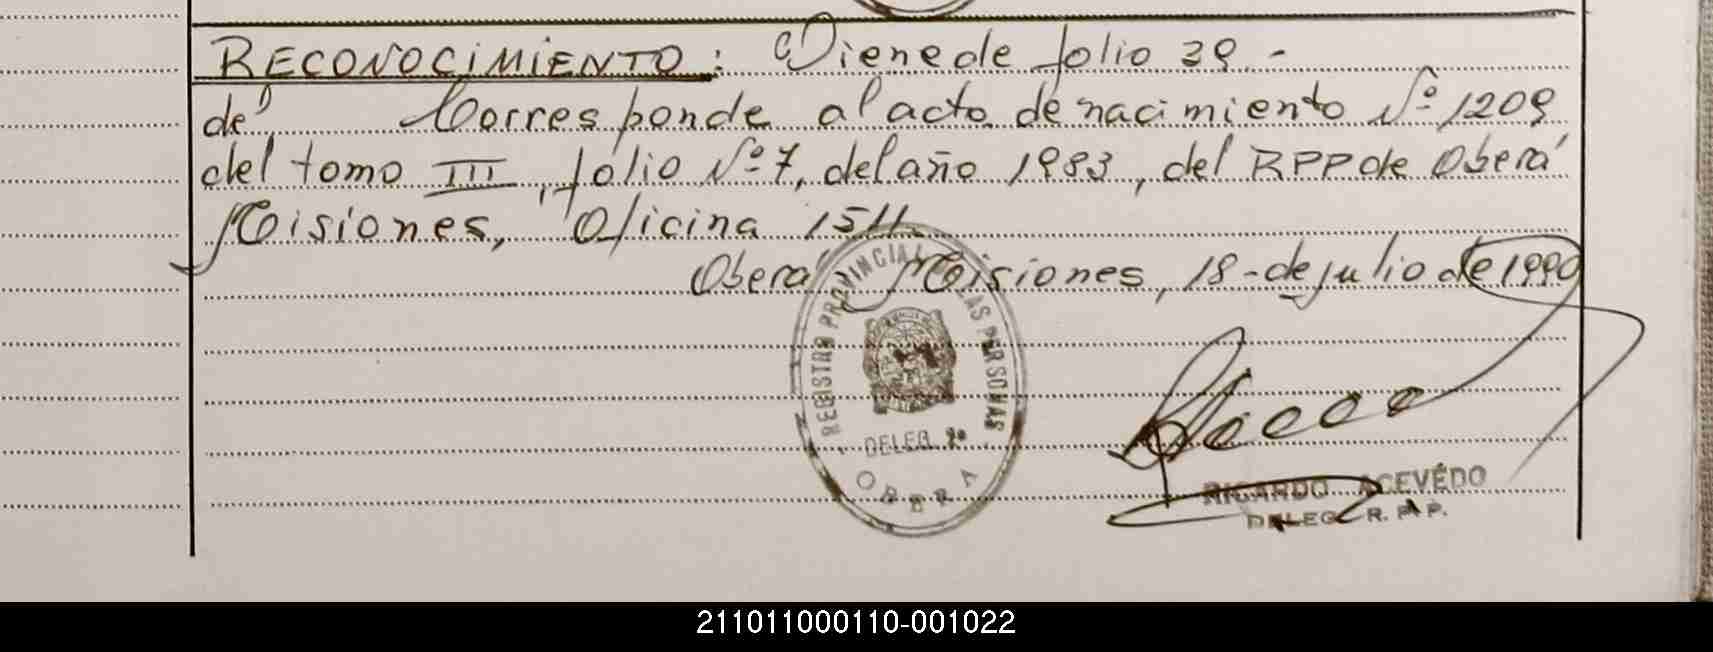 RECONOCIMIENTO: Viene de folio 39.-
de, Corresponde al acta de nacimiento Nº 1209
del tomo III, folio Nº 7, del año 1983, del RPP de Oberá
Misiones, Oficina 1511.
Oberá - Misiones, 18-de julio de 1990
REGISTRO PROVINCIAL DE LAS PERSONAS
DELEG.
OBERA
RICARDO ACEVÉDO
DELEG. R. P. P.
211011000110-001022